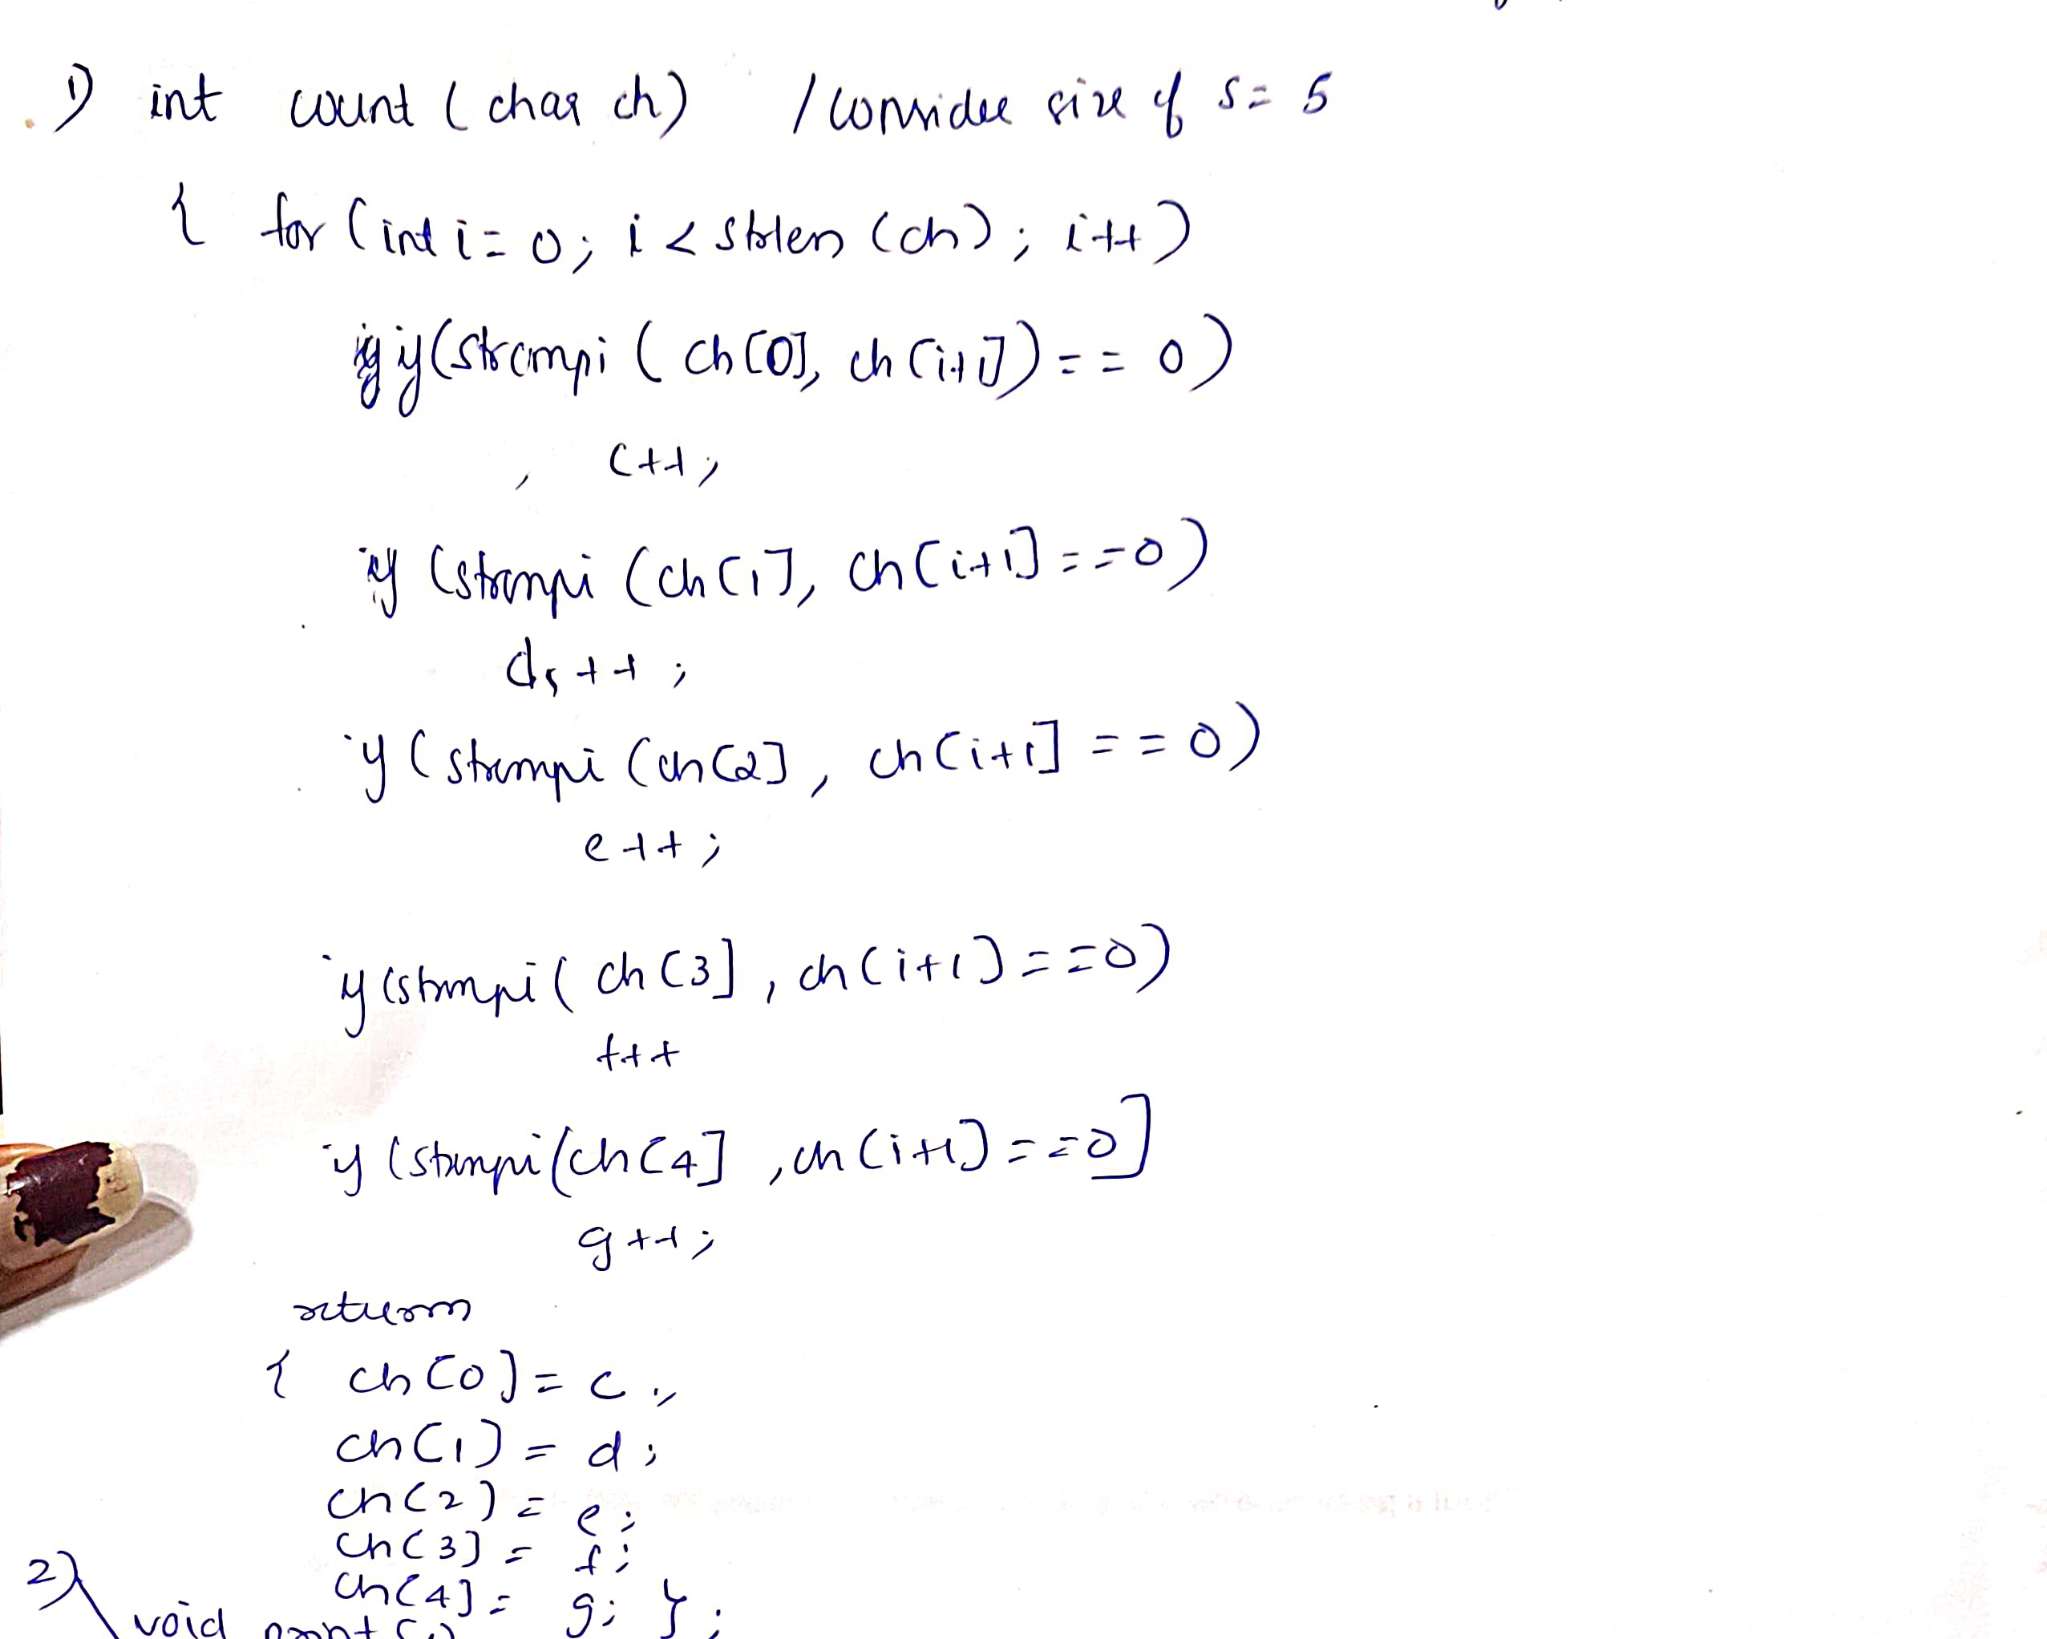 1) int count ( char ch) / Consider size of s = 5
{ for (int i = 0; i < strlen (ch); i++)
if (strcmpi ( ch[0], ch[i+1]) == 0)
c++;
if (strcmpi (ch[1], ch[i+1] ==0)
ds++ ;
if (strcmpi (ch[2], ch[i+1] == 0)
e++;
if (strcmpi ( ch[3], ch[i+1] ==0)
f++
if (strcmpi (ch[4] , ch[i+1] ==0]
g++;
return
{ ch[0] = c ;
ch[1] = d ;
ch[2] = e ;
ch[3] = f ;
ch[4] = g; } ;
2) void print ()